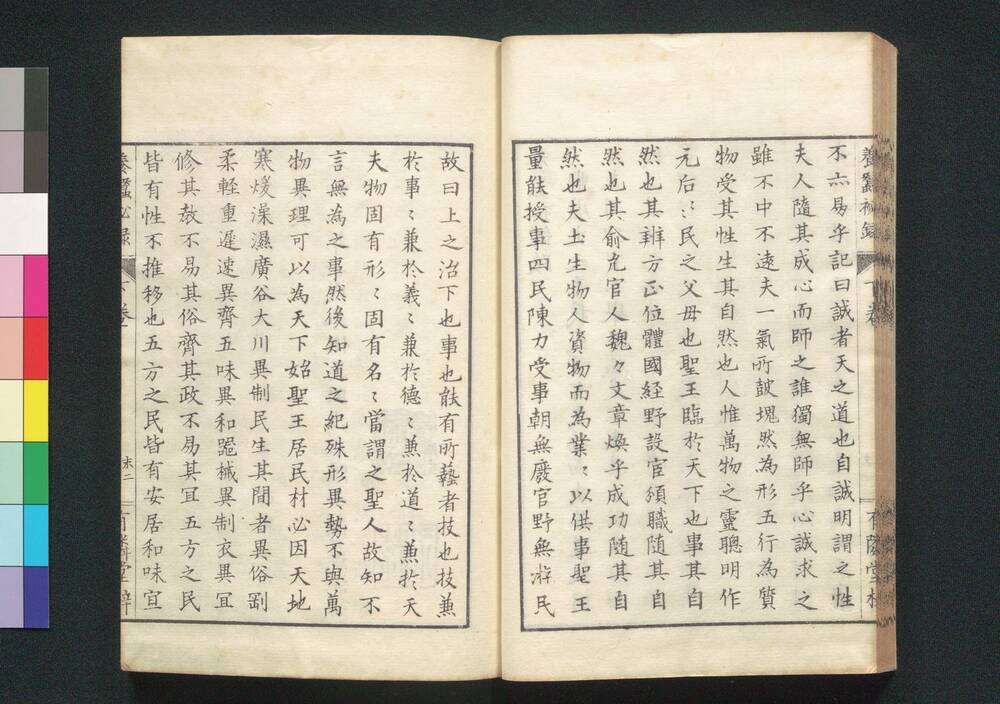 養蠶秘録
下卷
不亦易乎記曰誠者天之道也自誠明謂之性
夫人隨其成心而師之誰獨無師乎心誠求之
雖不中不遠夫一氣所皷塊然為形五行為質
物受其性生其自然也人惟萬物之靈聰明作
元后〻民之父母也聖王臨於天下也事其自
然也其辨方正位體國経野設官頒職隨其自
然也其俞允官人魏々文章煥乎成功随其自
然也夫土生物人資物而為業〻以供事聖王
量能授事四民陳力受事朝無廢官野無游民
故曰上之治下也事也能有所藝者技也技兼
於事〻兼於義〻兼於德〻兼於道〻兼於天
夫物固有形〻固有名〻當謂之聖人故知不
言無為之事然後知道之紀殊形異勢不與萬
物異理可以為天下始聖王居民材必因天地
寒煖澡濕廣谷大川異制民生其間者異俗剛
柔輕重遲速異齊五味異和噐械異制衣異冝
修其教不易其俗齊其政不易其冝五方之民
皆有性不推移也五方之民皆有安居和味宜
養蠶秘録
下卷
末二